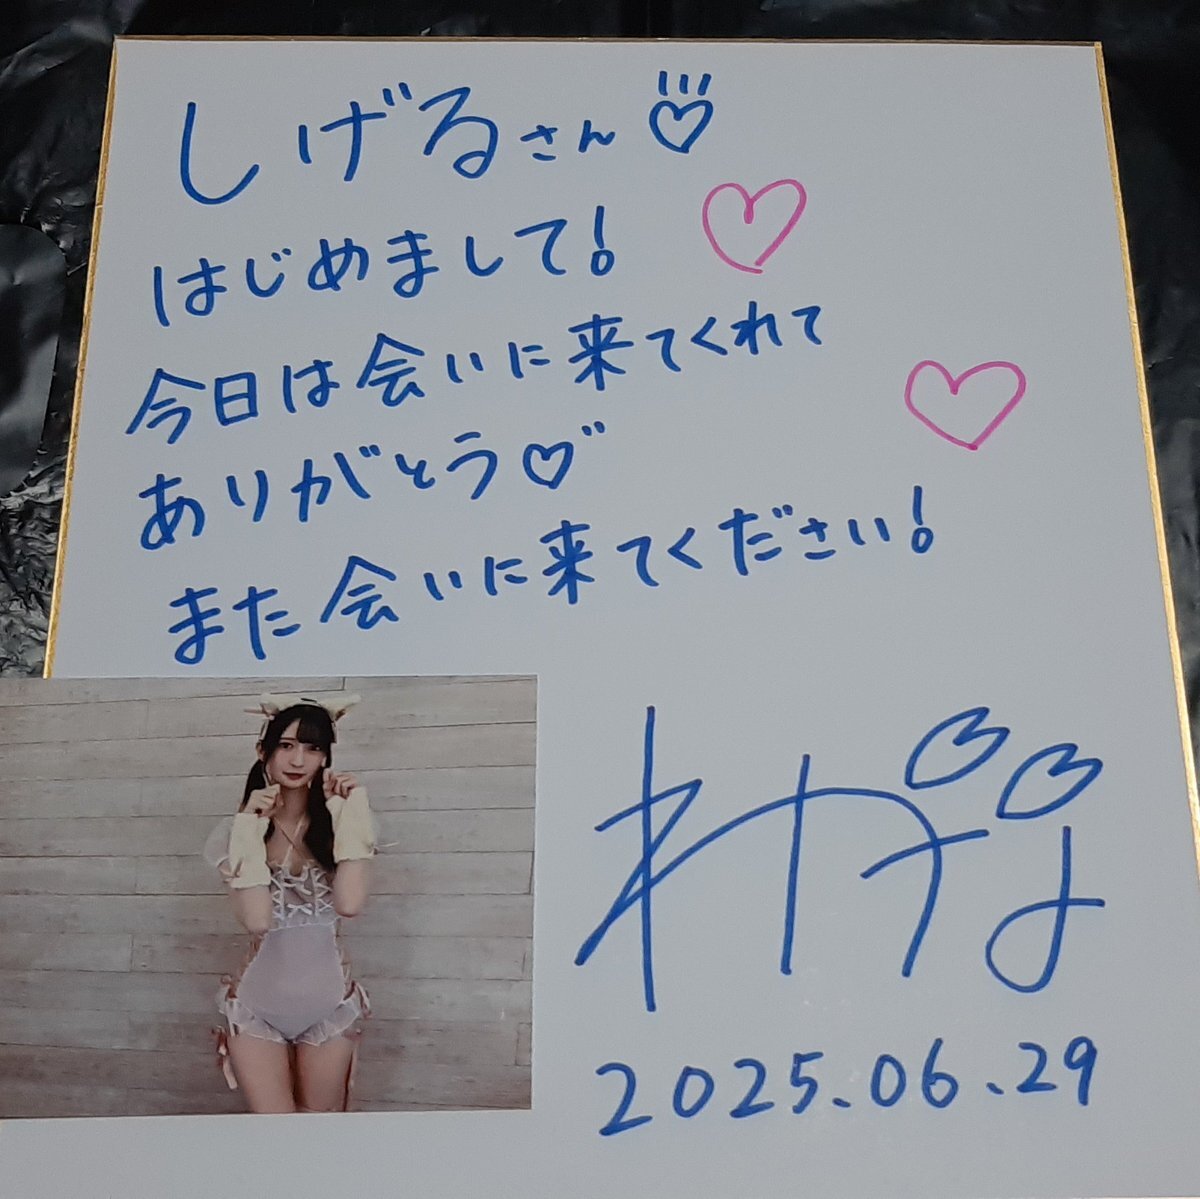 しげるさん♡
はじめまして!
今日は会いに来てくれて
ありがとう♡
また会いに来てください!
わかな
2025.06.29